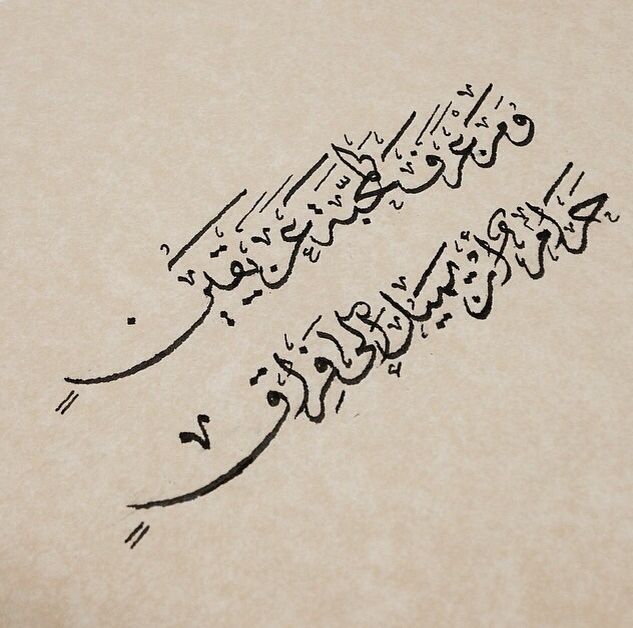 فمن عرف المحبة عن يقين
حرام أن يميل إلى فراق